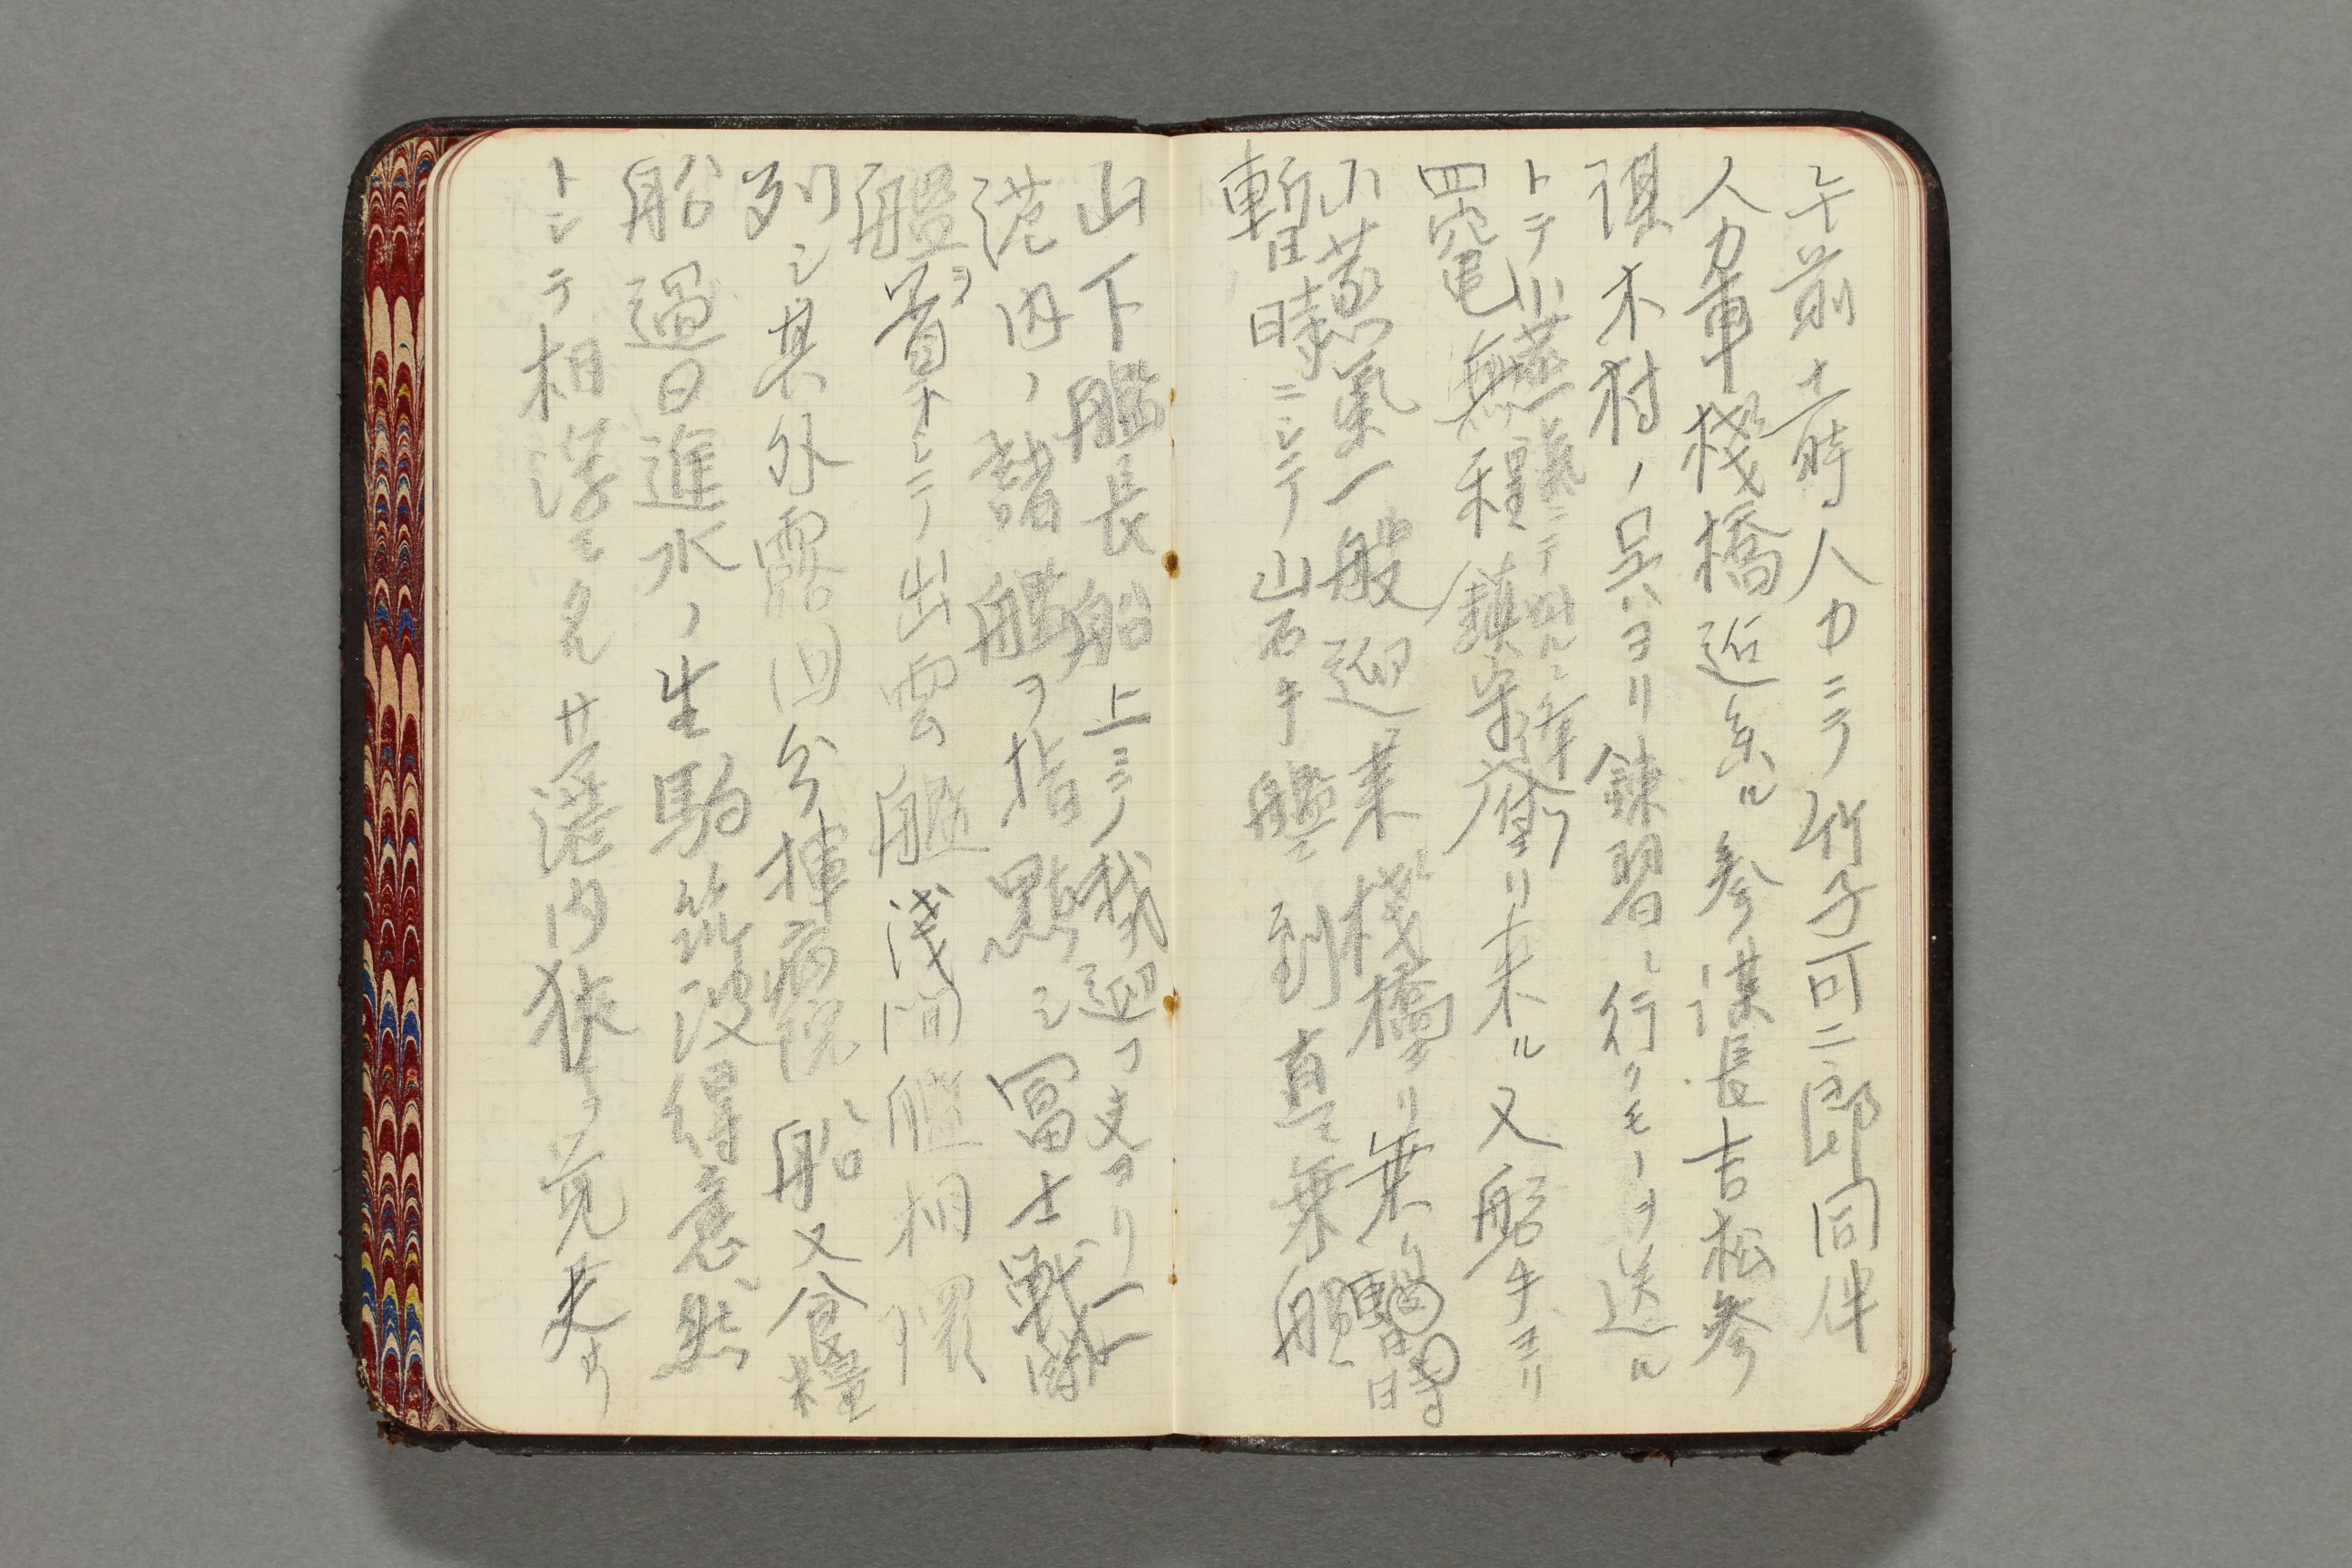 午前十一時人力ニテ竹子可二郎同伴
人力車棧橋近ク来ル参謀長吉松参
謀木村ノ呉ヨリ錬習ニ行クモノヲ送ル
トテ小蒸氣ニテ
四竃無程鎮守府ヨリ来ル又磐手ヨリ
小蒸氣一艘迎来棧橋ヨリ乗ル
暫時ニシテ山石手艦ニ到直ニ乗艦
山下艦長船上ニテ我迎フ夫ヨリ
港内ノ諸艦ヲ指點シ冨士戦闘
艦ヲ首トシテ出雲艦浅間艦相環
列シ其外露国分捕病院船又食糧
船過日進水ノ生駒筑波得意然
トシテ相浮ミ名サヘ港内狭キヲ覚ヘタリ